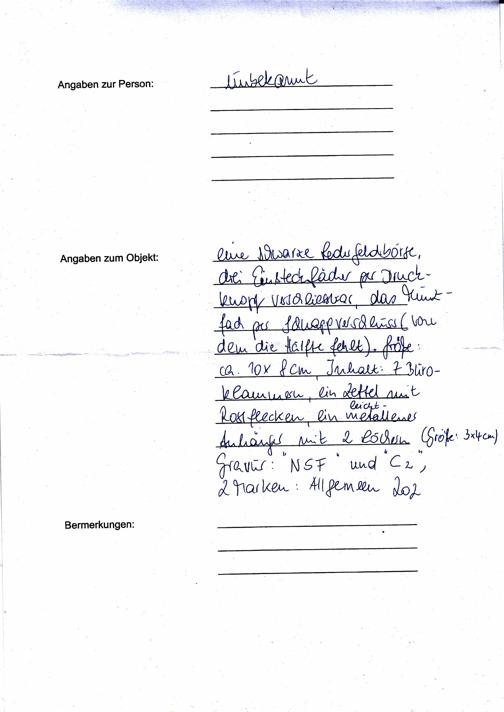 Angaben zur Person: Unbekannt
Angaben zum Objekt: eine schwarze Ledergeldbörse,
drei Einsteckfächer per Druck-
knopf verschliesbar, das Münz-
fach per Schnappverschluss (von
dem die Hälfte fehlt). Größe:
ca. 10x8cm, Inhalt: 7 Büro-
klammern, ein Zettel mit
Rostflecken, ein leicht-metallener
Anhänger mit 2 Löchern (Größe: 3x4cm)
Gravur: "NSF" und "C2",
2 Marken: Allgemeen 202
Bermerkungen: